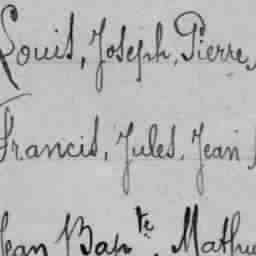 Louis, Joseph, Pierre,
Francis, Jules, Jean
Jean Bapte, Mathu